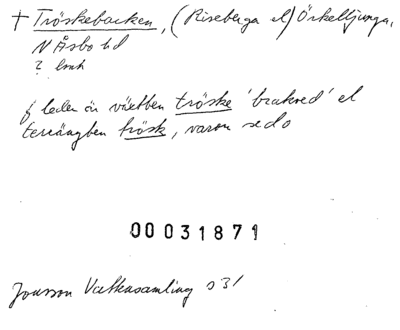 † Tröskebacken, (Riseberga el) Örkelljunga,
N Åsbo hd
? lmk
f leden är växtben tröske 'brakved' el
terrängben trösk, varom se do
00031871
Jonsson Vattusamling s 31